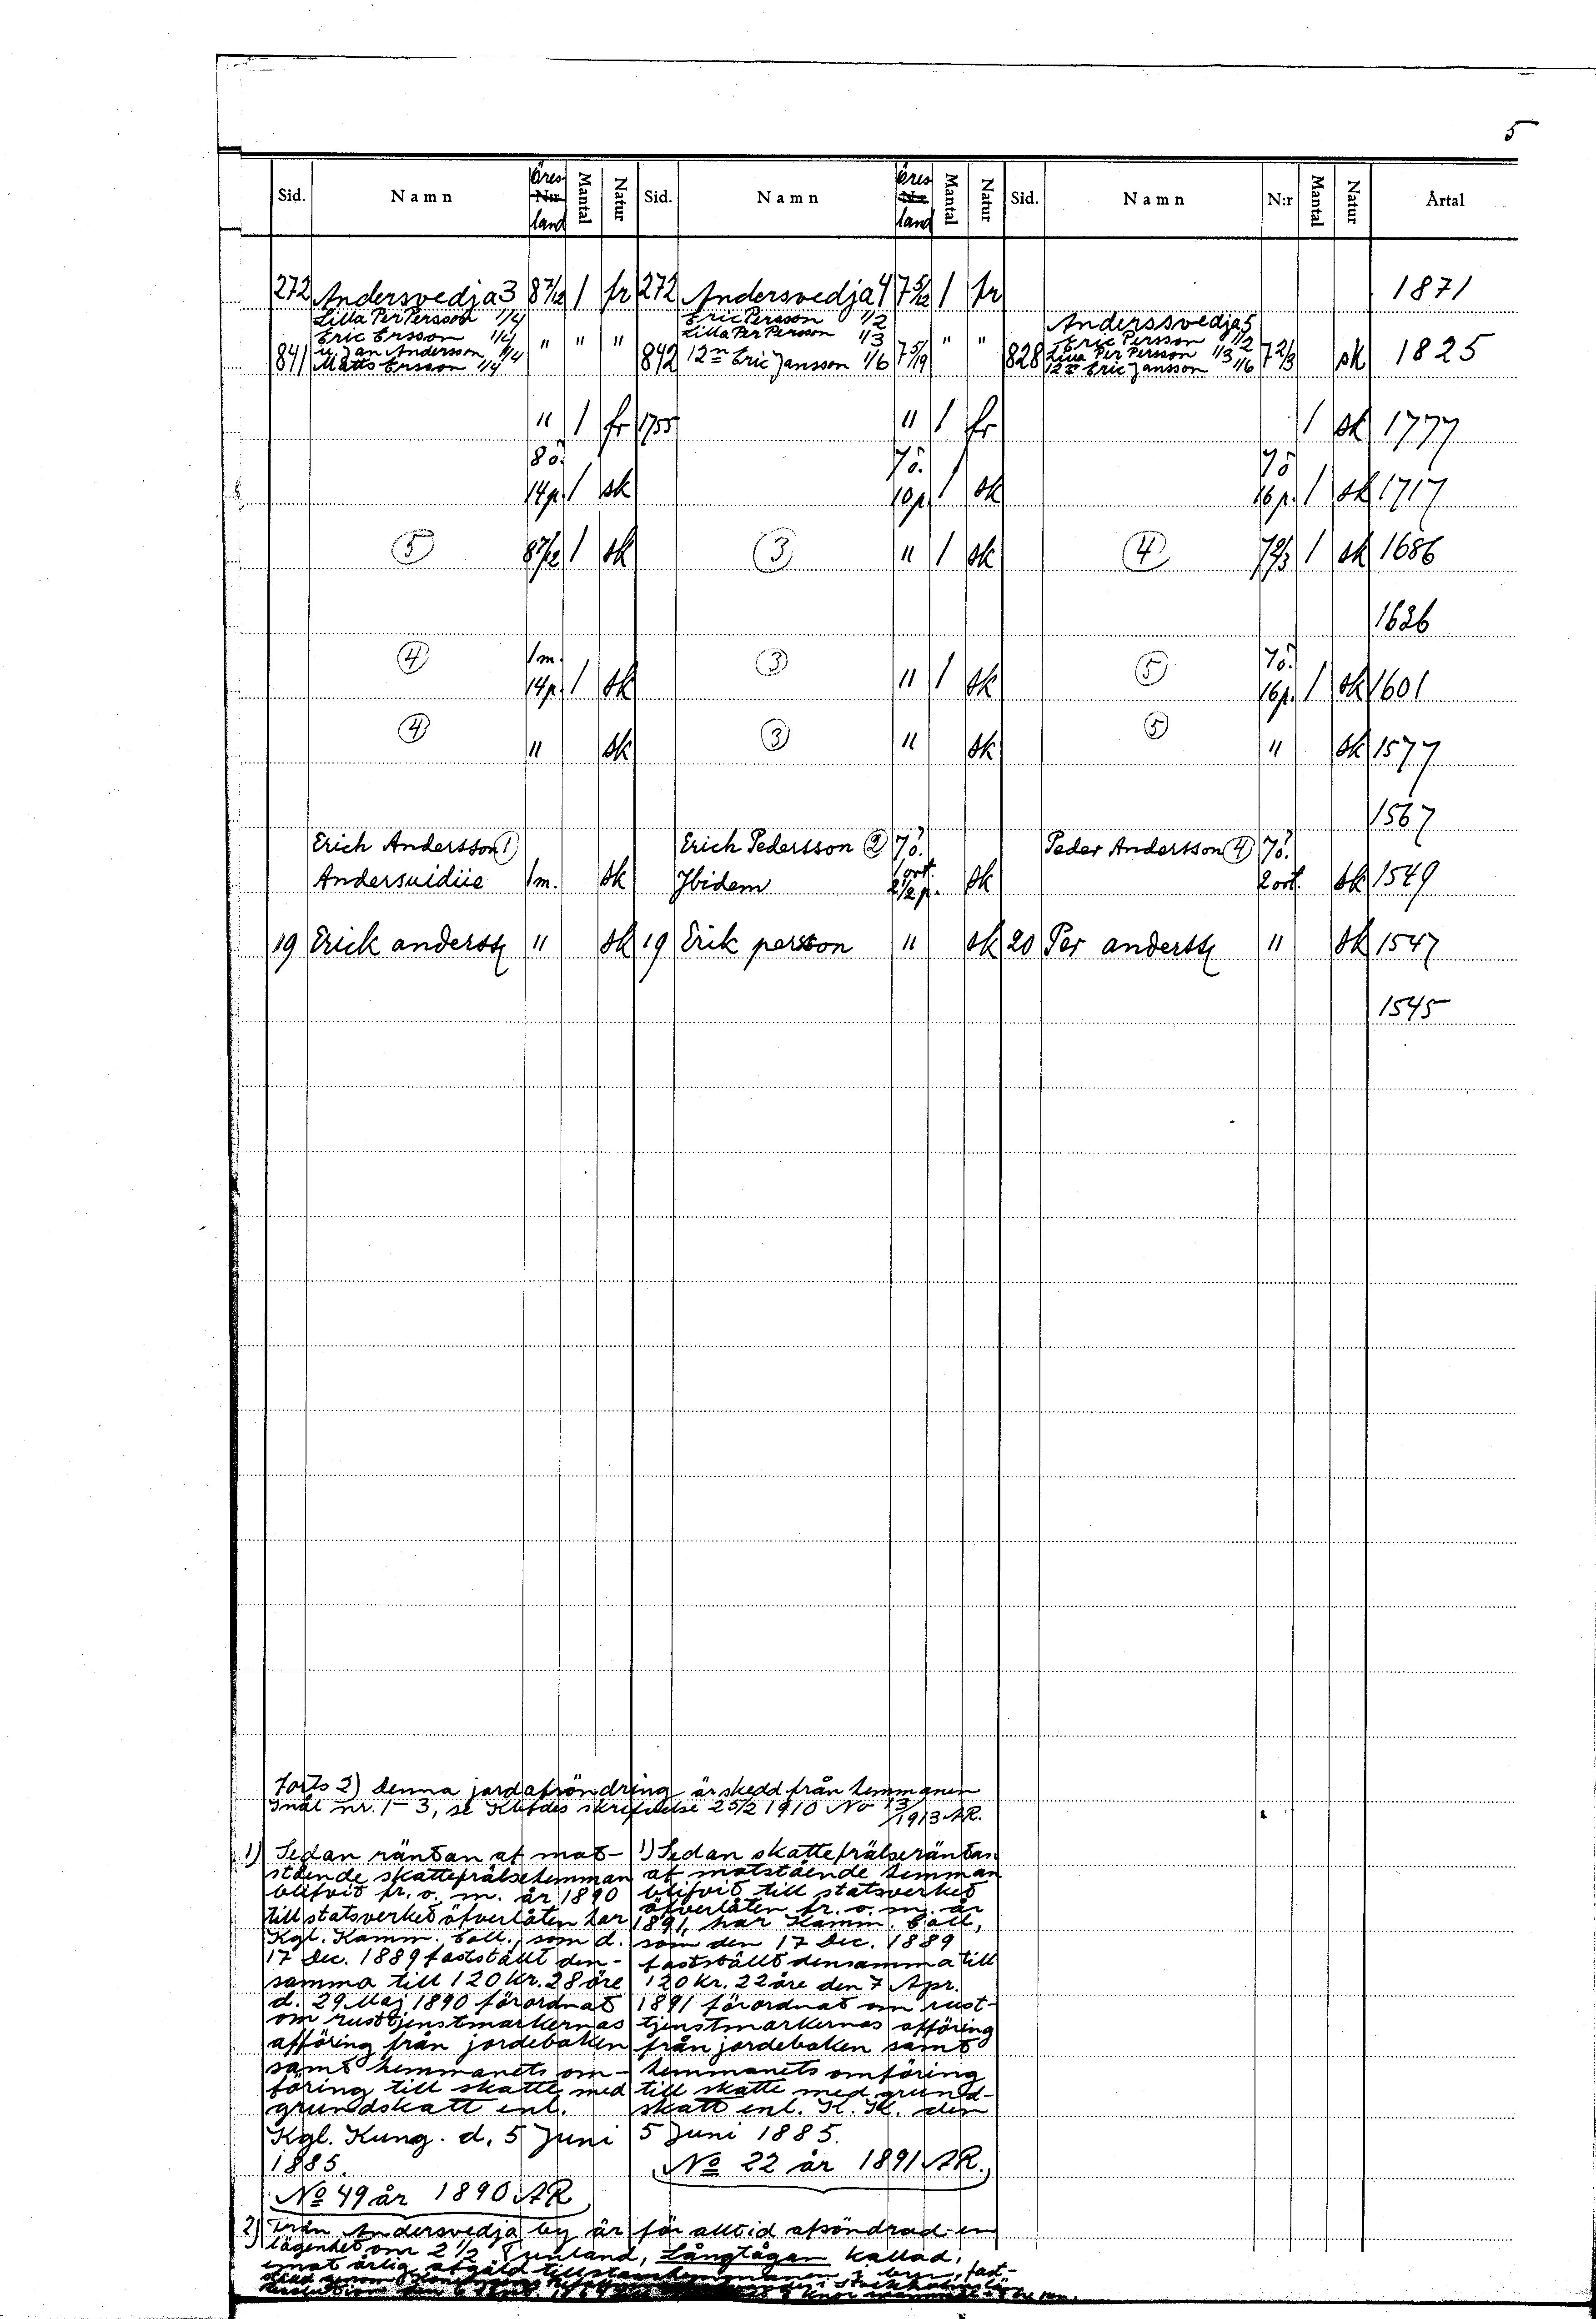 5
Sid. Namn Öres N:r land Mantal Natur Sid. Namn Öres N:r land Mantal Natur Sid. Namn N:r Mantal Natur Årtal
272 Andersvedja 3 8 7/12 1 fr 272 Andersvedja 4 7 5/12 1 fr 1871
Lilla Per Persson 1/4 Eric Persson 1/2 Anderssvedja 5
Eric Ersson 1/4 " " " Lilla Per Persson 1/3 " " Eric Persson 1/2
841 Jan Andersson 1/4 842 12n Eric Jansson 1/6 7 5/19 828 Lilla Per Persson 1/3 7 2/3 sk 1825
Matts Ersson 1/4 12n Eric Jansson 1/6
" 1 fr 1755 " 1 fr 1 sk 1777
8ö. 7ö. 7ö
14p. 1 sk 10p. 1 sk 16p. 1 sk 1717
5 8 7/12 1 sk 3 " 1 sk 4 7 2/3 1 sk 1686
1626
4 1m. 3 5 7ö.
14p. 1 sk " 1 sk 16p. 1 sk 1601
4 " sk 3 " sk 5 " sk 1577
1567
Erich Andersson 1) Erich Pedersson 2 7ö. Peder Andersson 4 7ö.
Andersuidiie 1m. sk Jbidem 1 ort. 2 1/2 p. sk 2 ort. sk 1549
19 Erick anderss " sk 19 Erik persson " sk 20 Per anderss " sk 1547
1545
Forts 2) denna jordafsöndring är skedd från hemmanen
nr. 1-3, se Kbfdes skrifvelse 25/2 1910 No 13/1913 AR.
1) Sedan räntan af mot-
stående skattefrälsehemman
blifvit fr. o. m. år 1890
till statsverket öfverlåten har
Kgl. Kamm. Coll., som d.
17 Dec. 1889 fastställt den-
samma till 120 kr. 28 öre
d. 29 Maj 1890 förordnat
om rusttjenstmarkernas
afföring från jordeboken
samt hemmanets om-
föring till skatte med
grundskatt enl.
Kgl. Kung. d. 5 Juni
1885.
No 49 år 1890 AR
1) Sedan skattefrälseräntan
af motstående hemman
blifvit till statsverket
öfverlåten fr. o. m. år
1891, har Kamm. Coll,
som den 17 Dec. 1889
fastställt densamma till
120 kr. 22 öre den 7 Apr.
1891 förordnat om rust-
tjenstmarkernas afföring
från jordeboken samt
hemmanets omföring
till skatte med grund-
skatt enl. K. K. den
5 Juni 1885.
No 22 år 1891 AR.
2) Från Andersvedja by är för alltid afsöndrad en
lägenhet om 2 1/2 Tunland, Långtågan kallad,
emot årlig afgäld till stamhemmanen i byn, fast-